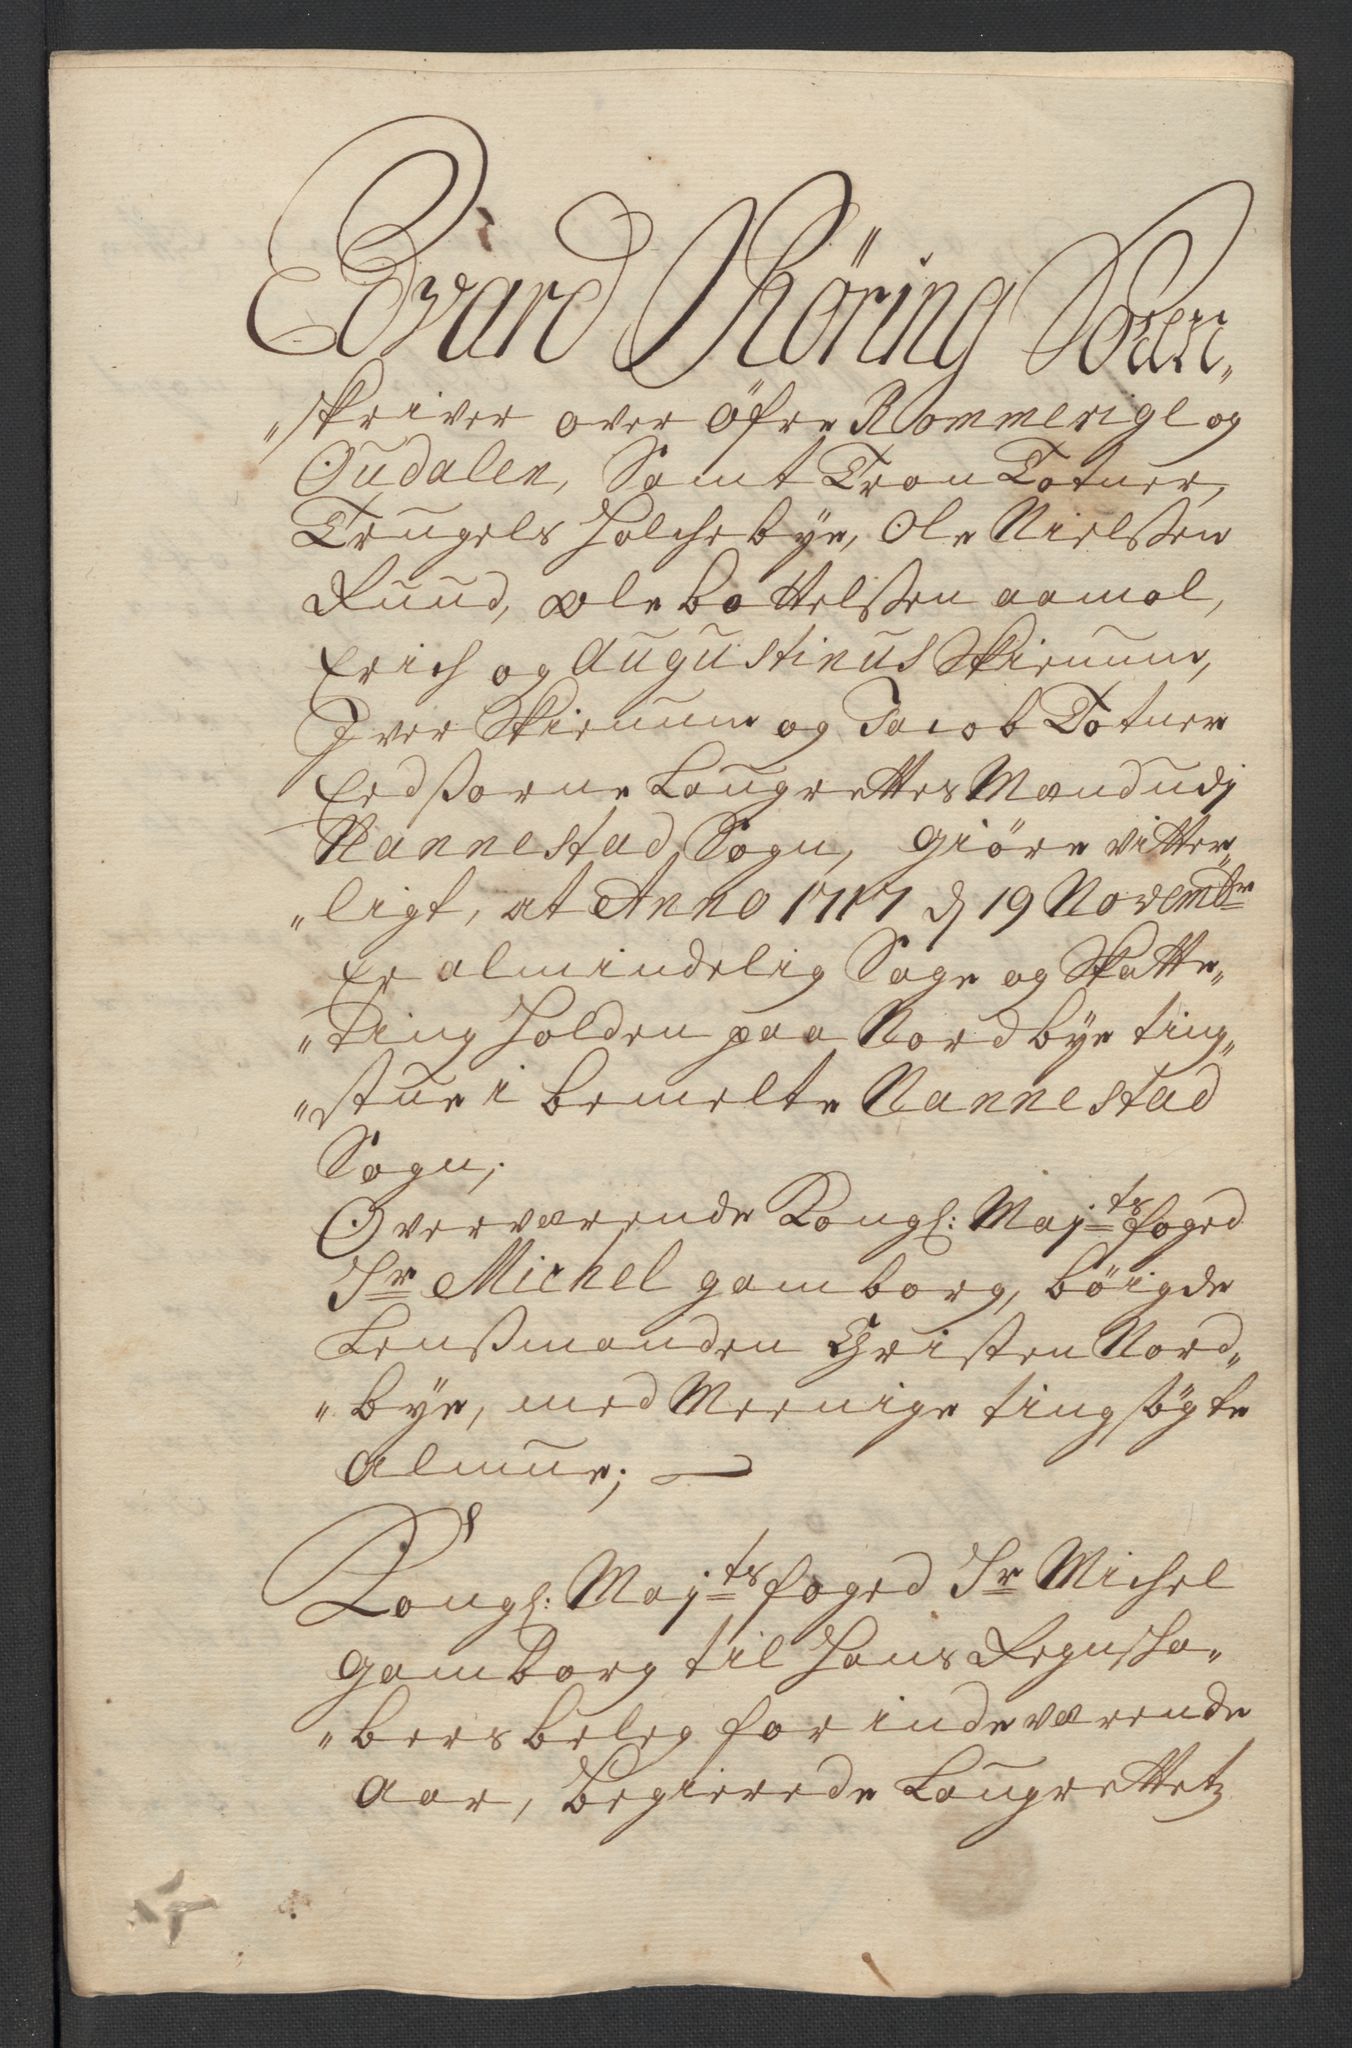 Edvard Röring Soren„
„skriver over Öfre Rommerige og
Oudalen, Samt Tron Totner,
Trugels Holchebye, Ole Nielssen
Ruud, Ole bottelssen aamol,
Erich og Augustinus Skirnum,
Iver Skirnum og Jacob Totner
Eedsorne Laugrettes Mænd udj
Nannestad Sogn, giöre vitter„
„ligt, at Anno 1717 d 19 Novembr
Er almindelig Sage og Skatte„
„Ting holden paa Nordbye ting„
„stue i bemelte Nannestad
Sogn;
Overværende Kongl: Maj:ts foged
Sr Michel gamborg, böigde
Lensmanden Christen Nord„
„bye, med Meenige tingsögte
Almue;
Kongl: Maj:ts foged Sr Michel
gamborg til Hans Regnscha„
„bers beleg for indeværende
Aar, begierede Laugrettetz